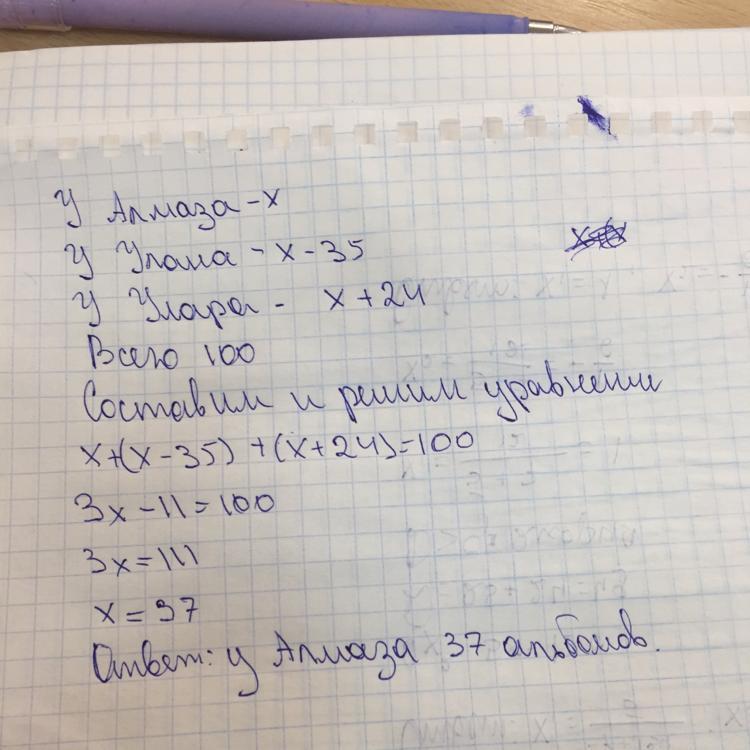 У Алмаза - х
У Улана - х - 35
У Улара - х + 24
Всего 100
Составим и решим уравнение
х+(х-35)+(х+24)=100
3х-11=100
3х=111
х=37
Ответ: у Алмаза 37 альбомов.